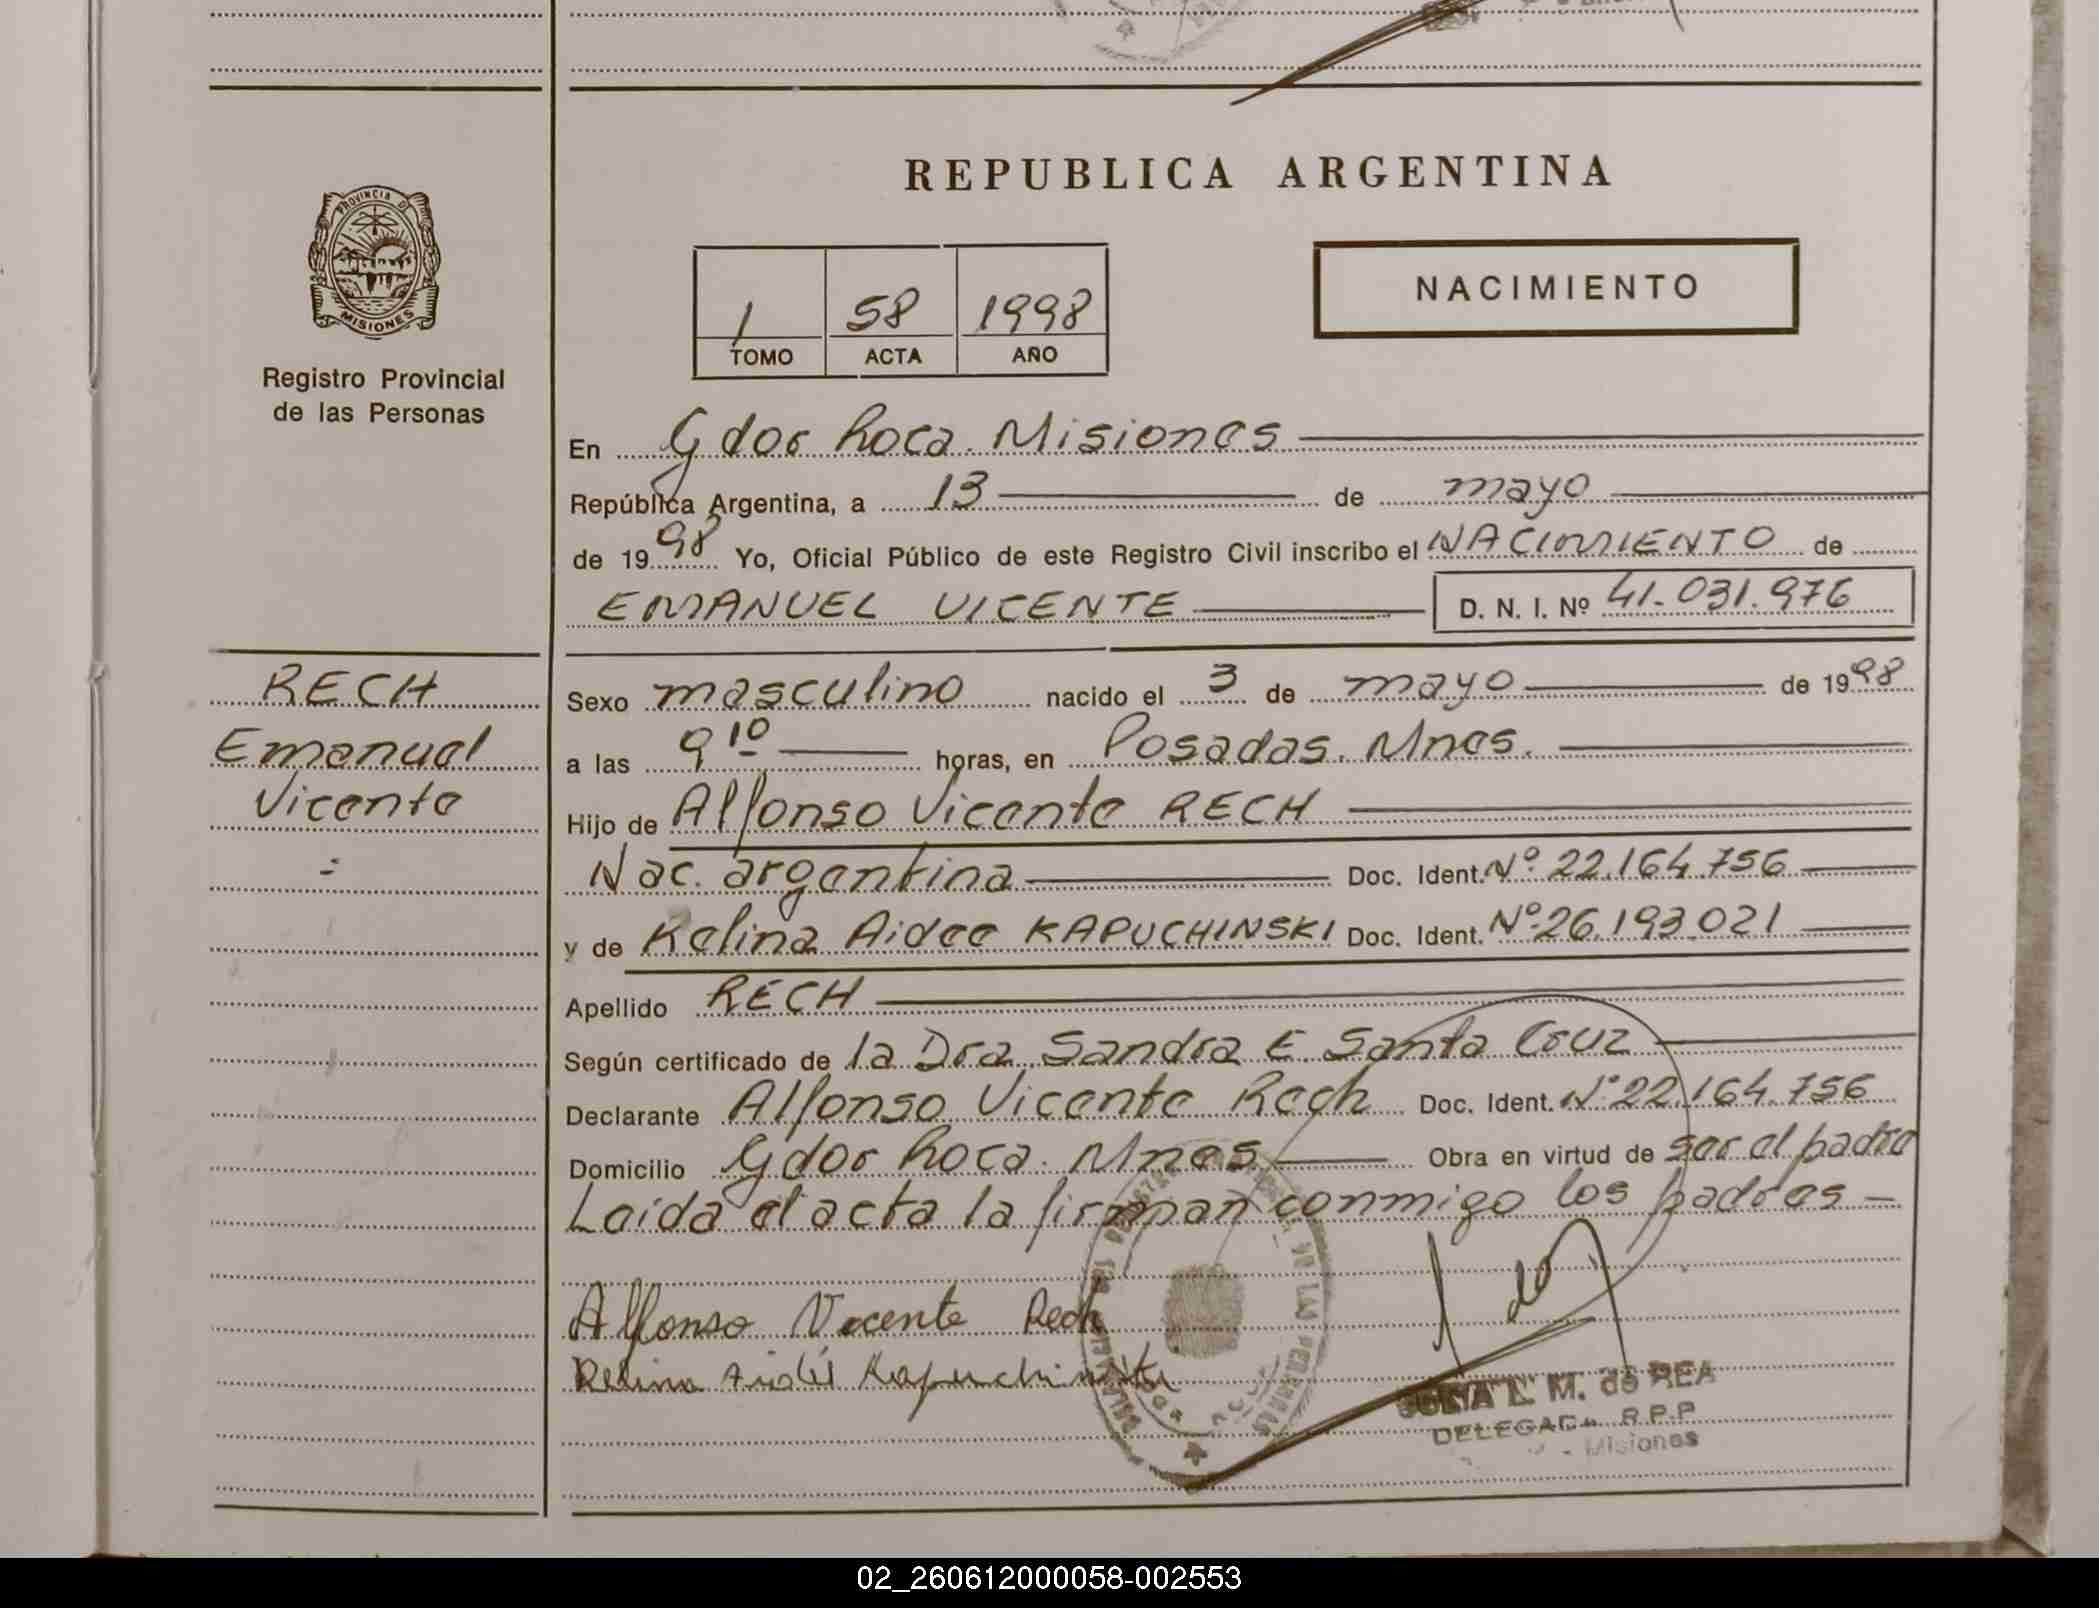 REPUBLICA ARGENTINA
PROVINCIA D
MISIONES
Registro Provincial
de las Personas
1 58 1998
TOMO ACTA AÑO
NACIMIENTO
En Gdor Roca. Misiones
República Argentina, a 13 de mayo
de 1998 Yo, Oficial Público de este Registro Civil inscribo el NACIMIENTO de
EMANUEL VICENTE D. N. I. Nº 41.031.976
RECH
Emanuel
Vicente
Sexo masculino nacido el 3 de mayo de 1998
a las 9 10 horas, en Posadas. Mnes.
Hijo de Alfonso Vicente RECH
Nac. argentina Doc. Ident. Nº 22.164.756
y de Relina Aidee KAPUCHINSKI Doc. Ident. Nº 26.193.021
Apellido RECH
Según certificado de la Dra. Sandra E Santa Cruz
Declarante Alfonso Vicente Rech Doc. Ident. Nº 22.164.756
Domicilio Gdor Roca. Mnes Obra en virtud de ser el padre
Leída el acta la firman conmigo los padres
Alfonso Vicente Rech
Relina Aidee Kapuchinski
L. M. de REA
DELEGADA R.P.P
Misiones
02_260612000058-002553